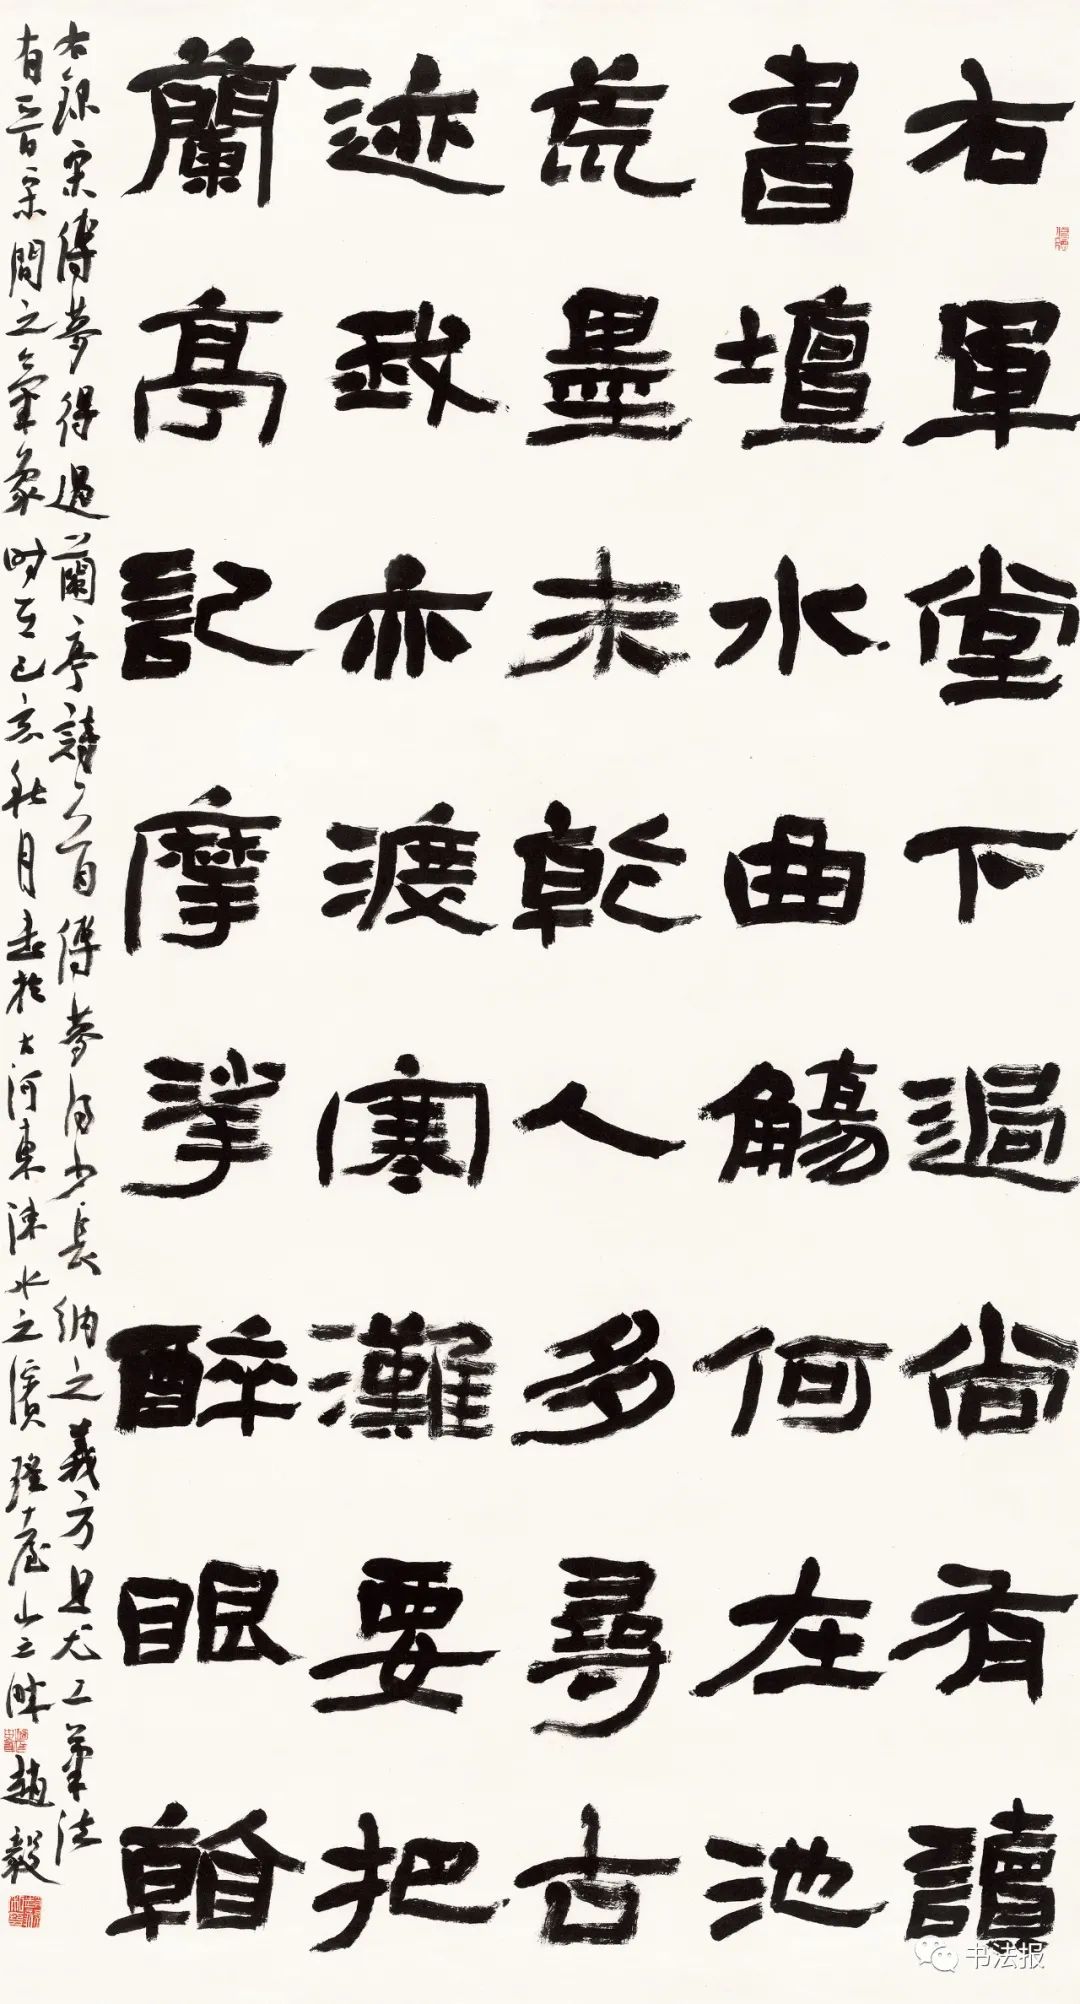 右軍堂下過尚有讀
書壇水曲觴何在池
荒墨未乾人多尋古
迹我亦渡寒灘要把
蘭亭記摩挲醉眼看
右録宋傅夢得過蘭亭詩一首傅夢得少長納之義方且尤工筆法
有晉宋間之氣象時在己亥秋月書於古河東涑水之濱瑶臺山之畔趙毅
书法报